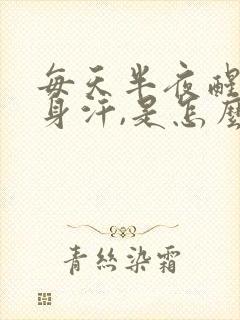 每天半夜醒
身汗,是怎麼
青絲染霜